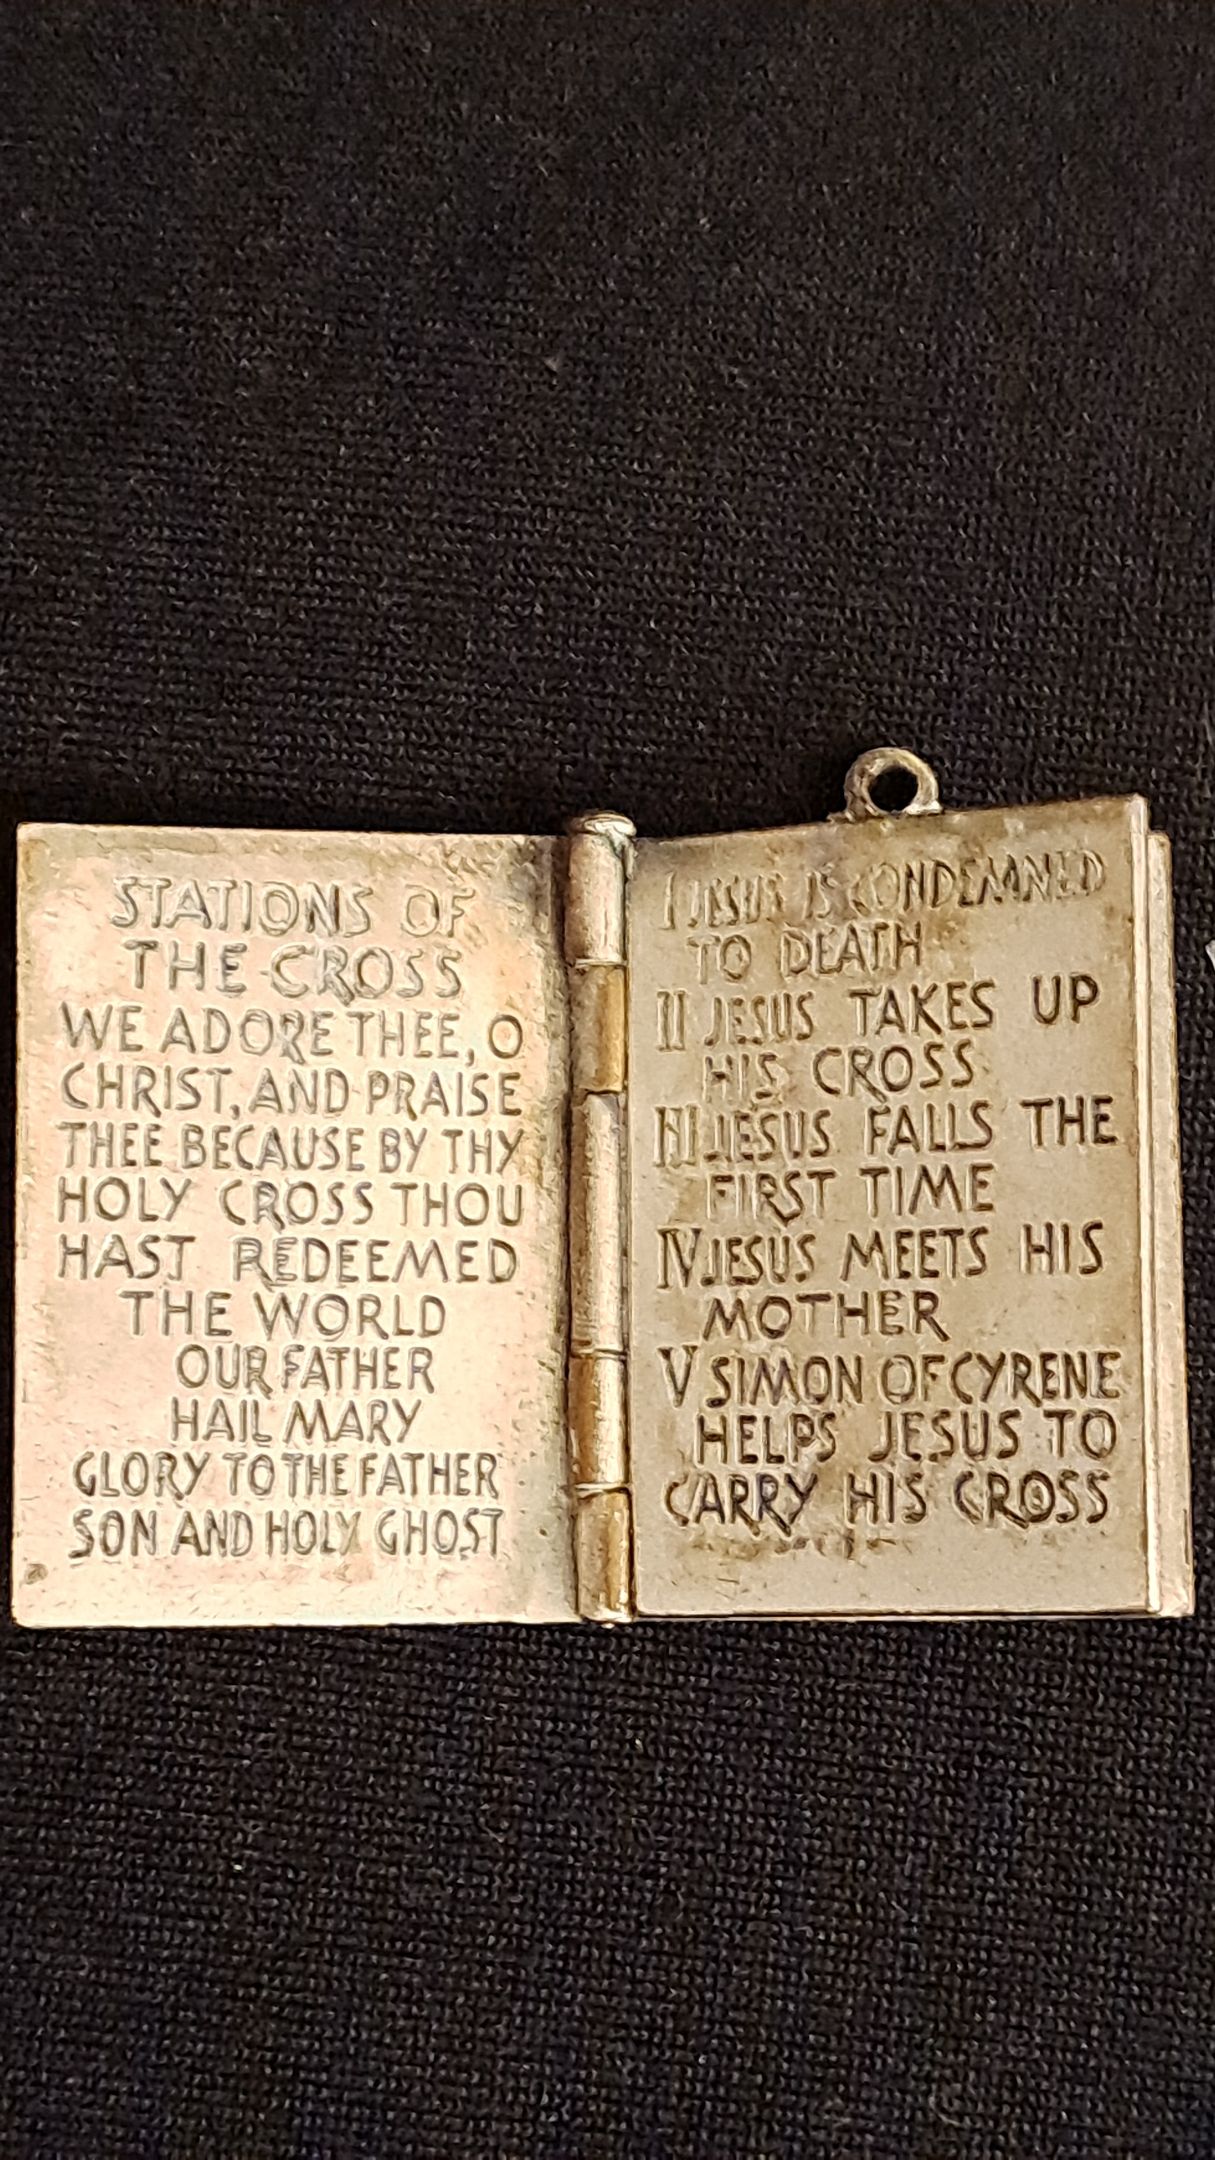 STATIONS OF
THE CROSS
WE ADORE THEE, O
CHRIST, AND PRAISE
THEE BECAUSE BY THY
HOLY CROSS THOU
HAST REDEEMED
THE WORLD
OUR FATHER
HAIL MARY
GLORY TO THE FATHER
SON AND HOLY GHOST
I JESUS IS CONDEMNED
TO DEATH
II JESUS TAKES UP
HIS CROSS
III JESUS FALLS THE
FIRST TIME
IV JESUS MEETS HIS
MOTHER
V SIMON OF CYRENE
HELPS JESUS TO
CARRY HIS CROSS